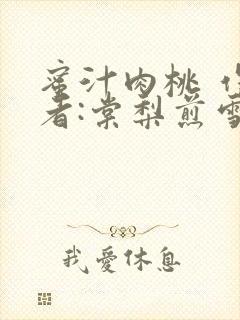 蜜汁肉桃
者:棠梨煎雪
我愛休息